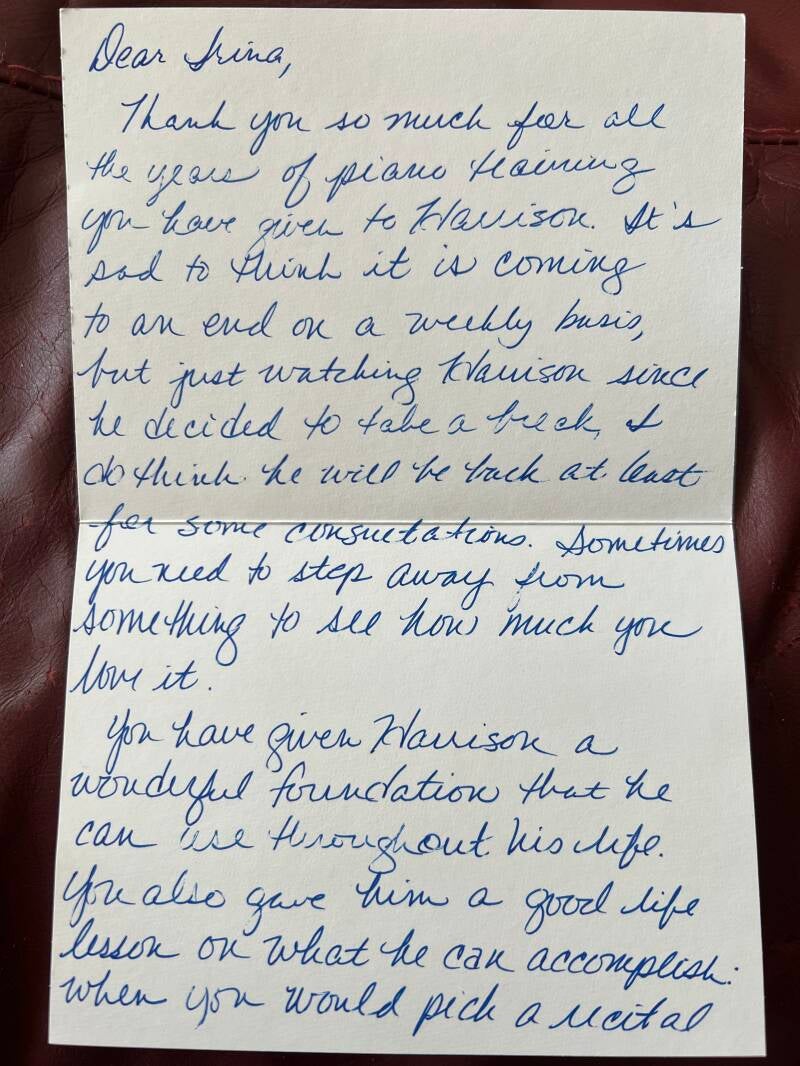 Dear Irina,
Thank you so much for all
the years of piano training
you have given to Harrison. It's
sad to think it is coming
to an end on a weekly basis,
but just watching Harrison since
he decided to take a break, I
do think he will be back at least
for some consultations. Sometimes
you need to step away from
something to see how much you
love it.
You have given Harrison a
wonderful foundation that he
can use throughout his life.
You also gave him a good life
lesson on what he can accomplish:
when you would pick a recital